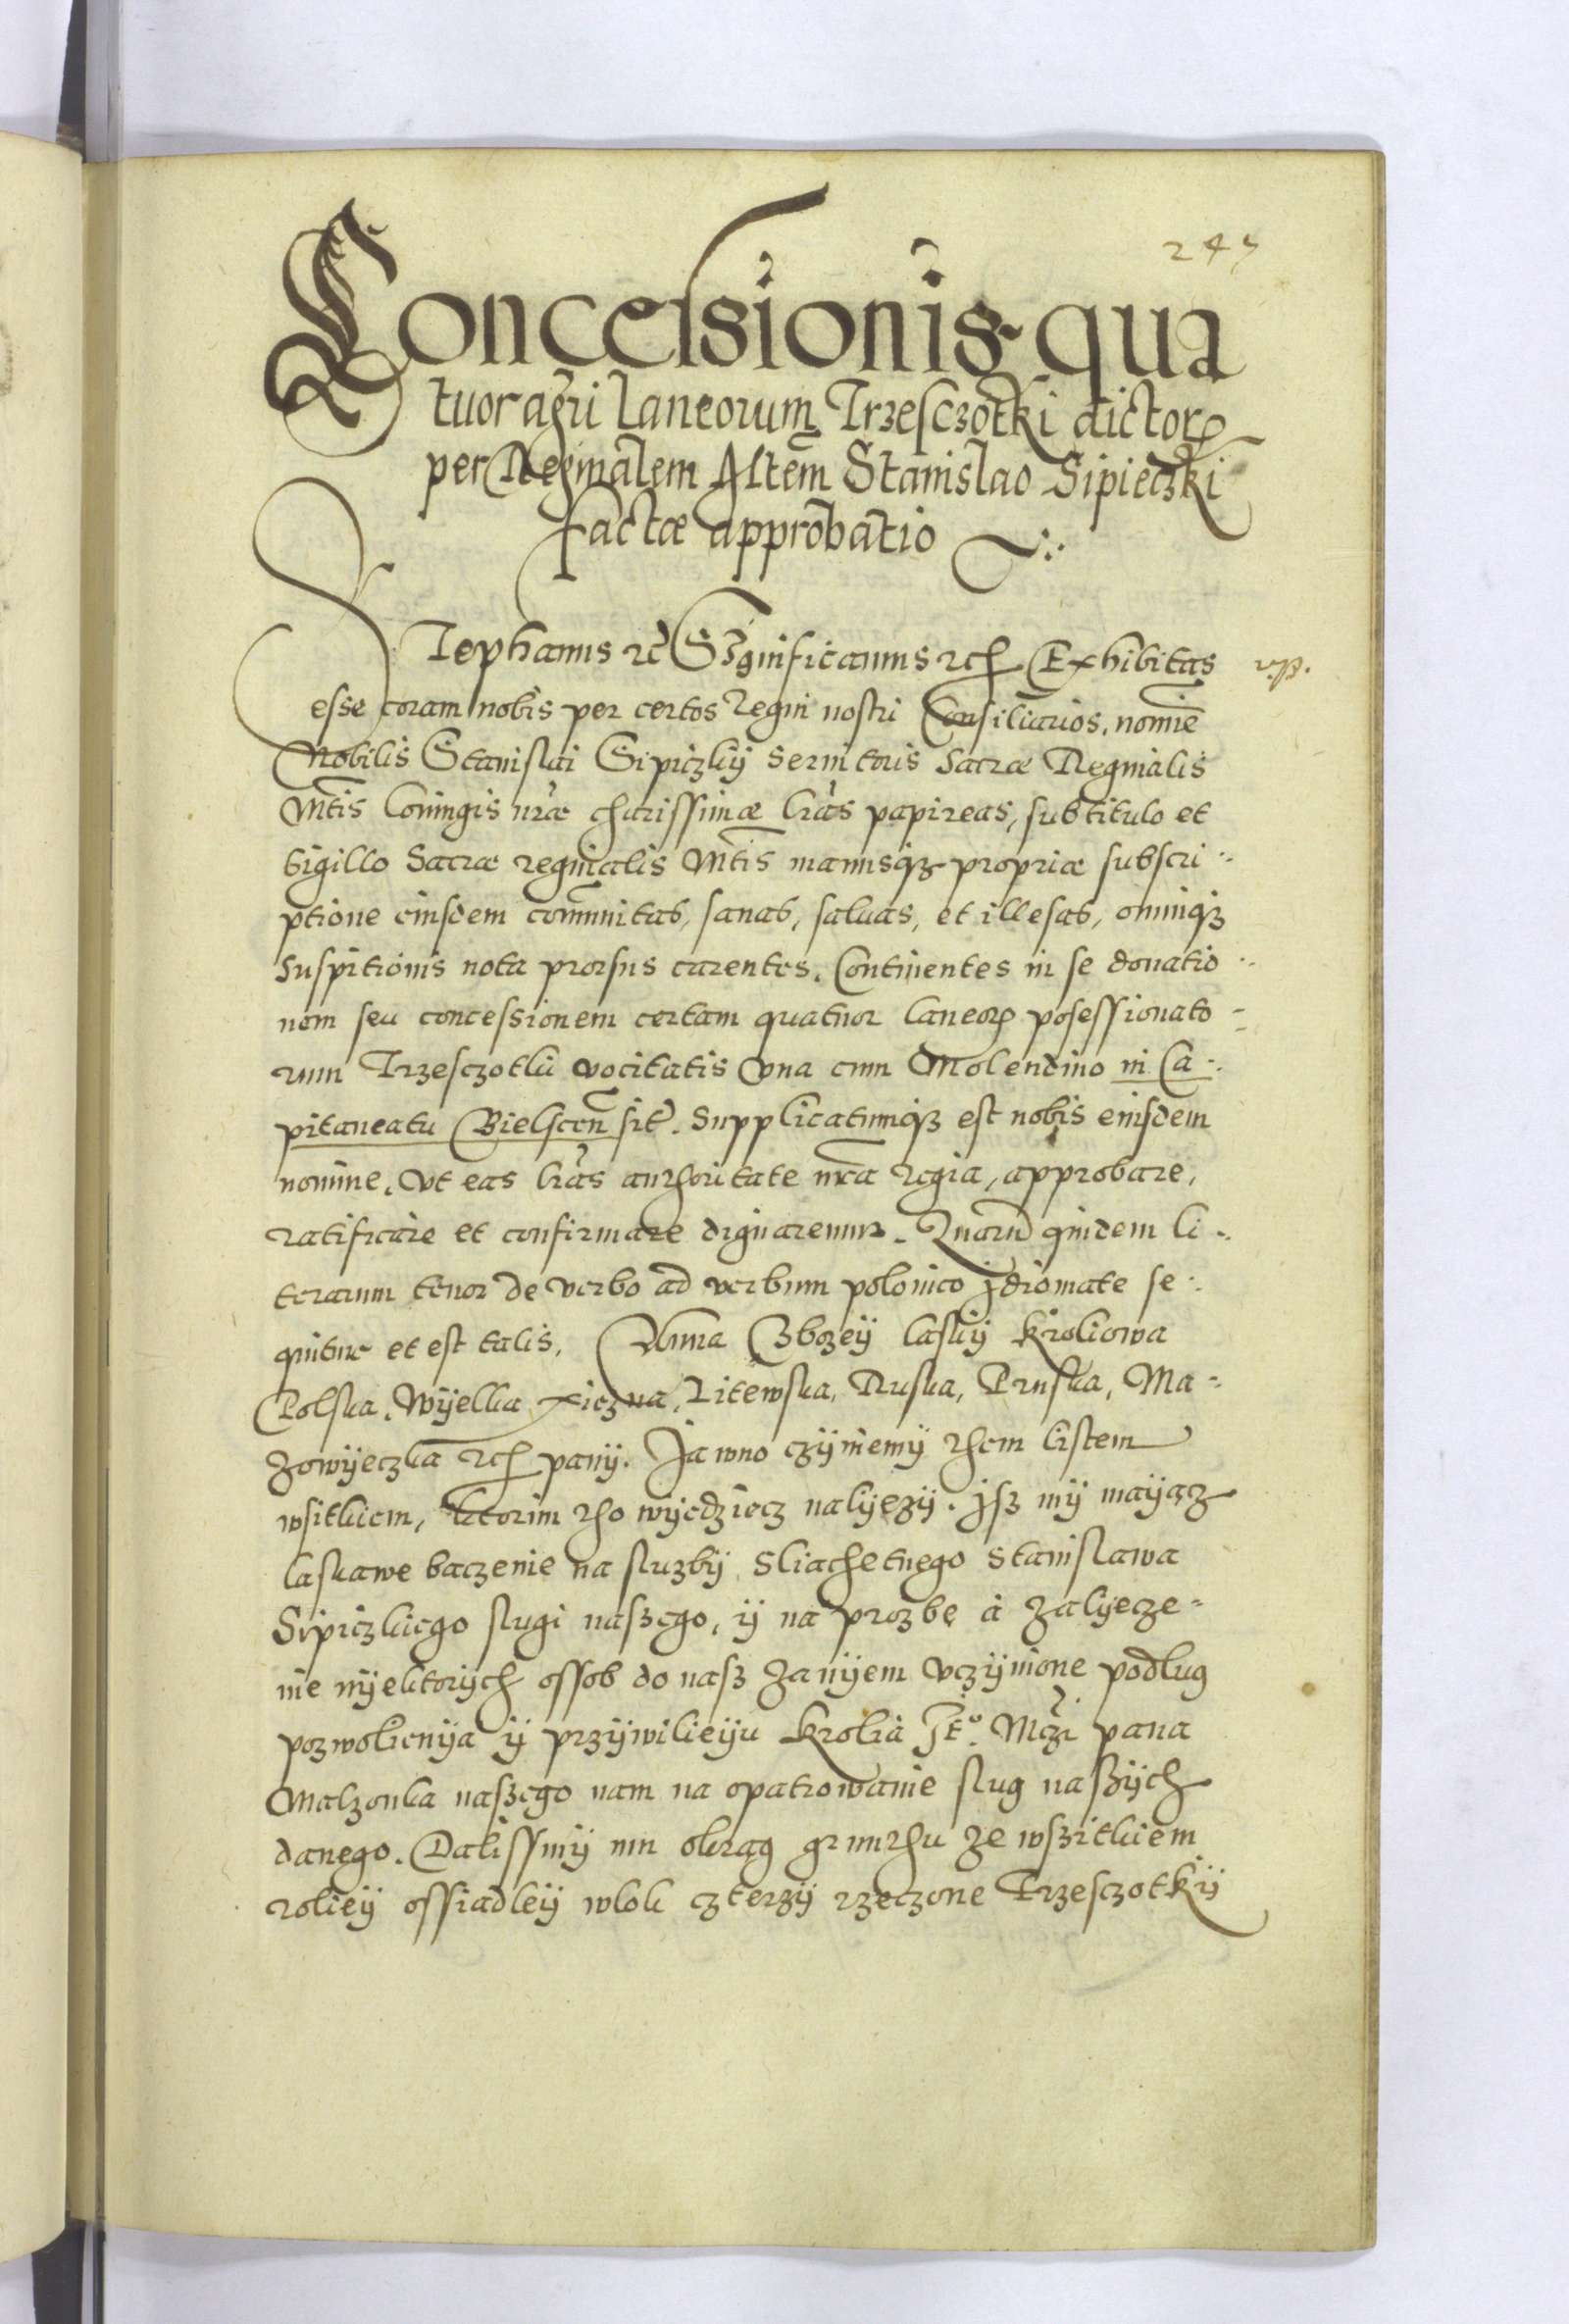 245
Concessionis qua
tuor agri laneorum Trzesczotki dictorꝝ
per Reginalem Mtem Stanislao Sipieczki
factæ approbatio
Stephanus ꝛc̄ Significamus ꝛcꝭ Exhibitas
v.p.
esse coram nobis per certos Regni nostri Consiliarios, nomīe
Nobilis Stanislai Sipiczkÿ servitoris Sacræ Reginalis
Mt̄is Coniugis nr̄æ charissimæ lr̄as papireas, sub titulo et
Sigillo Sacræ reginalis Mt̄is manusqȝ propriæ subscri
ptione eiusdem com̄unitas, sanas, salvas, et illesas, omniqȝ
Suspitionis nota prorsus carentes. Continentes in se donatio
nem seu concessionem certam quatuor laneorꝝ posessionato
rum Trzesczotki vocitatis Vna cum Molendino in Ca
pitaneatu Bielscen̄ sit̄. Supplicatumqȝ est nobis eiusdem
nomine. Vt eas lr̄as authoritate nr̄a regia, approbare,
ratificare et confirmare dignaremur. Quarū quidem li
terarum tenor de verbo ad verbum polonico Jdiomate se
quitur et est talis. Anna Zbozeÿ laskÿ Kroliowa
Polska, Wÿelka xiezna, Litewska, Ruska, Pruska, Ma
zowÿeczka ꝛcꝭ panÿ. Jawno czÿniemÿ them listem
wsitkiem, ktorim tho wÿedziecz nalÿezÿ. Jsz mÿ maÿącz
laskawe baczenie na sluzbÿ Sliachetnego Stanislawa
Sipiczkiego slugi naszego, ÿ na prozbę á zalÿecze
nie nÿektorÿch ossob do nasz za nÿem vczÿnione podlug
pozwolienÿa ÿ przÿwilieÿu Krolia Je͛º. Mcźi pana
Malzonka naszego nam na opatrowanie slug naszÿch
danego. Dalissmÿ mu okrąg grunthu ze wszitkiem
roliey ossiadleÿ wlok czterzÿ rzeczone Trzesczotkÿ